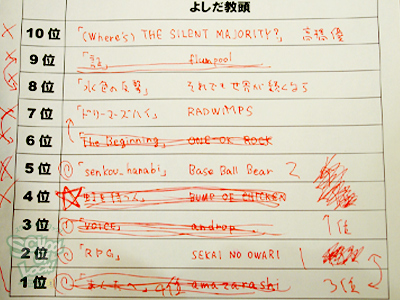 よしだ教頭
10位 「(Where's) THE SILENT MAJORITY?」 高橋優
9位 「証」 flumpool
8位 「水色の反撃」 それでも世界が続くなら
7位 「ドリーマーズ・ハイ」 RADWIMPS
6位 「The Beginning」 ONE OK ROCK
5位 ① 「senkou_hanabi」 Base Ball Bear 2
4位 「虹を待つ人」 BUMP OF CHICKEN
3位 ① 「Voice」 androp 7位
2位 ① 「RPG」 SEKAI NO OWARI
1位 ① amazarashi 3位